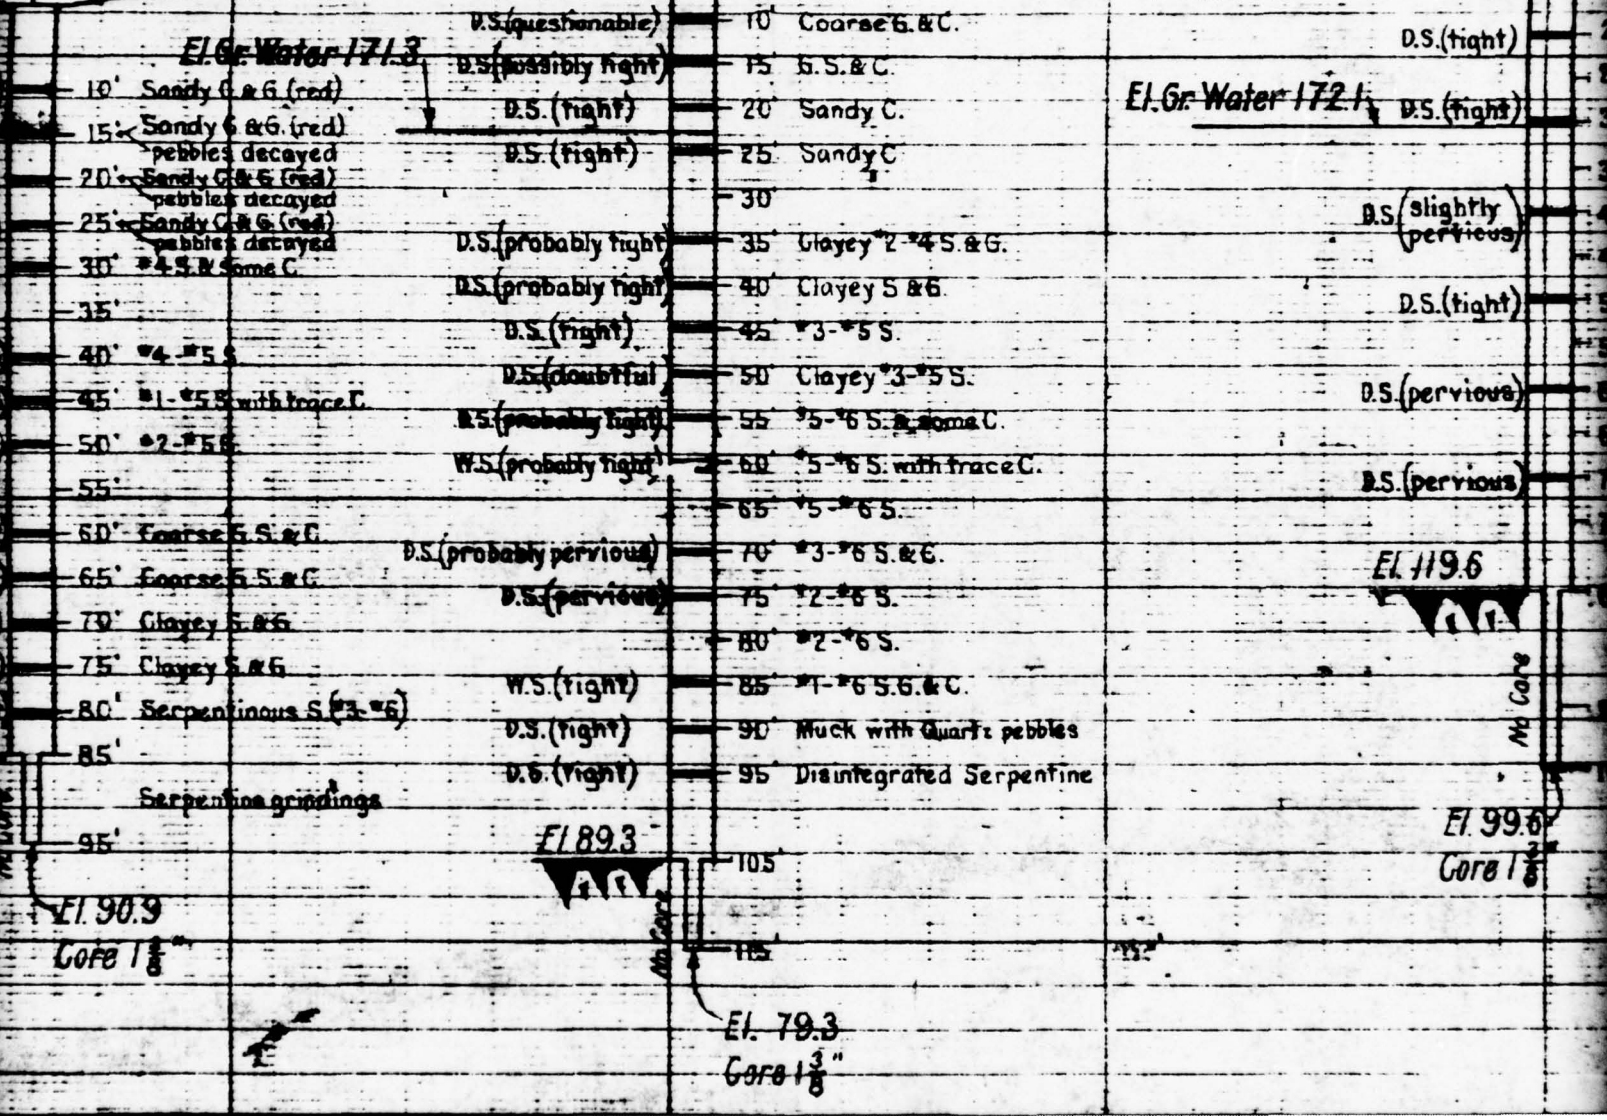 El. Gr. Water 171.3
10' Sandy C. & G. (red)
15' Sandy C. & G. (red)
pebbles decayed
20' Sandy C. & G. (red)
pebbles decayed
25' Sandy C. & G. (red)
pebbles decayed
30' #4 S. & some C.
35'
40' #4-#5 S.
45' #1-#5 S. with trace C.
50' #2-#5
55'
60' Coarse G. S. & C.
65' Coarse G. S. & C.
70' Clayey S. & G.
75' Clayey S. & G.
80' Serpentinous S. (#3-#6)
85'
Serpentine grindings
95'
El. 90.9
Core 1 3/8"
D.S. (questionable) 10' Coarse G. & C.
D.S. (possibly tight) 15' G. S. & C.
D.S. (tight) 20' Sandy C.
D.S. (tight) 25' Sandy C
30'
D.S. (probably tight) 35' Clayey #2-#4 S. & G.
D.S. (probably tight) 40' Clayey S & G
D.S. (tight) 45' #3-#5 S.
D.S. (doubtful) 50' Clayey #3-#5 S.
D.S. (probably tight) 55' #5-#6 S. & some C.
W.S. (probably tight) 60' #5-#6 S. with trace C.
65' #5-#6 S.
D.S. (probably pervious) 70' #3-#6 S. & G.
D.S. (pervious) 75' #2-#6 S.
80' #2-#6 S.
W.S. (tight) 85' #1-#6 S. G. & C.
D.S. (tight) 90' Muck with Quartz pebbles
D.S. (tight) 95' Disintegrated Serpentine
El 89.3
105'
No Core
115'
El. 79.3
Core 1 3/8"
D.S. (tight)
El. Gr. Water 172.1
D.S. (tight)
D.S. (slightly
pervious)
D.S. (tight)
D.S. (pervious)
D.S. (pervious)
El. 119.6
No Core
El. 99.6
Core 1 3/8"